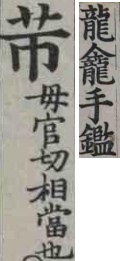 龍龕手鑑
芇毋官切相當也